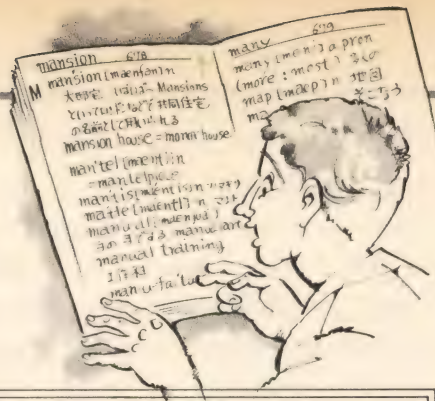 mansion 678
M mansion [maenʃən] n
大邸宅 しばしば Mansions
といった形で共同住宅
の名前として用いられる
mansion house = manor house
man'tel [maentl] n
= mantelpiece
mantis [maentis] n
mantle [maentl] n マント
manual [maenjuəl]
手の manual art
manual training
工作科
many 679
many [meni] a pron
(more : most) 多くの
map [maep] n 地図